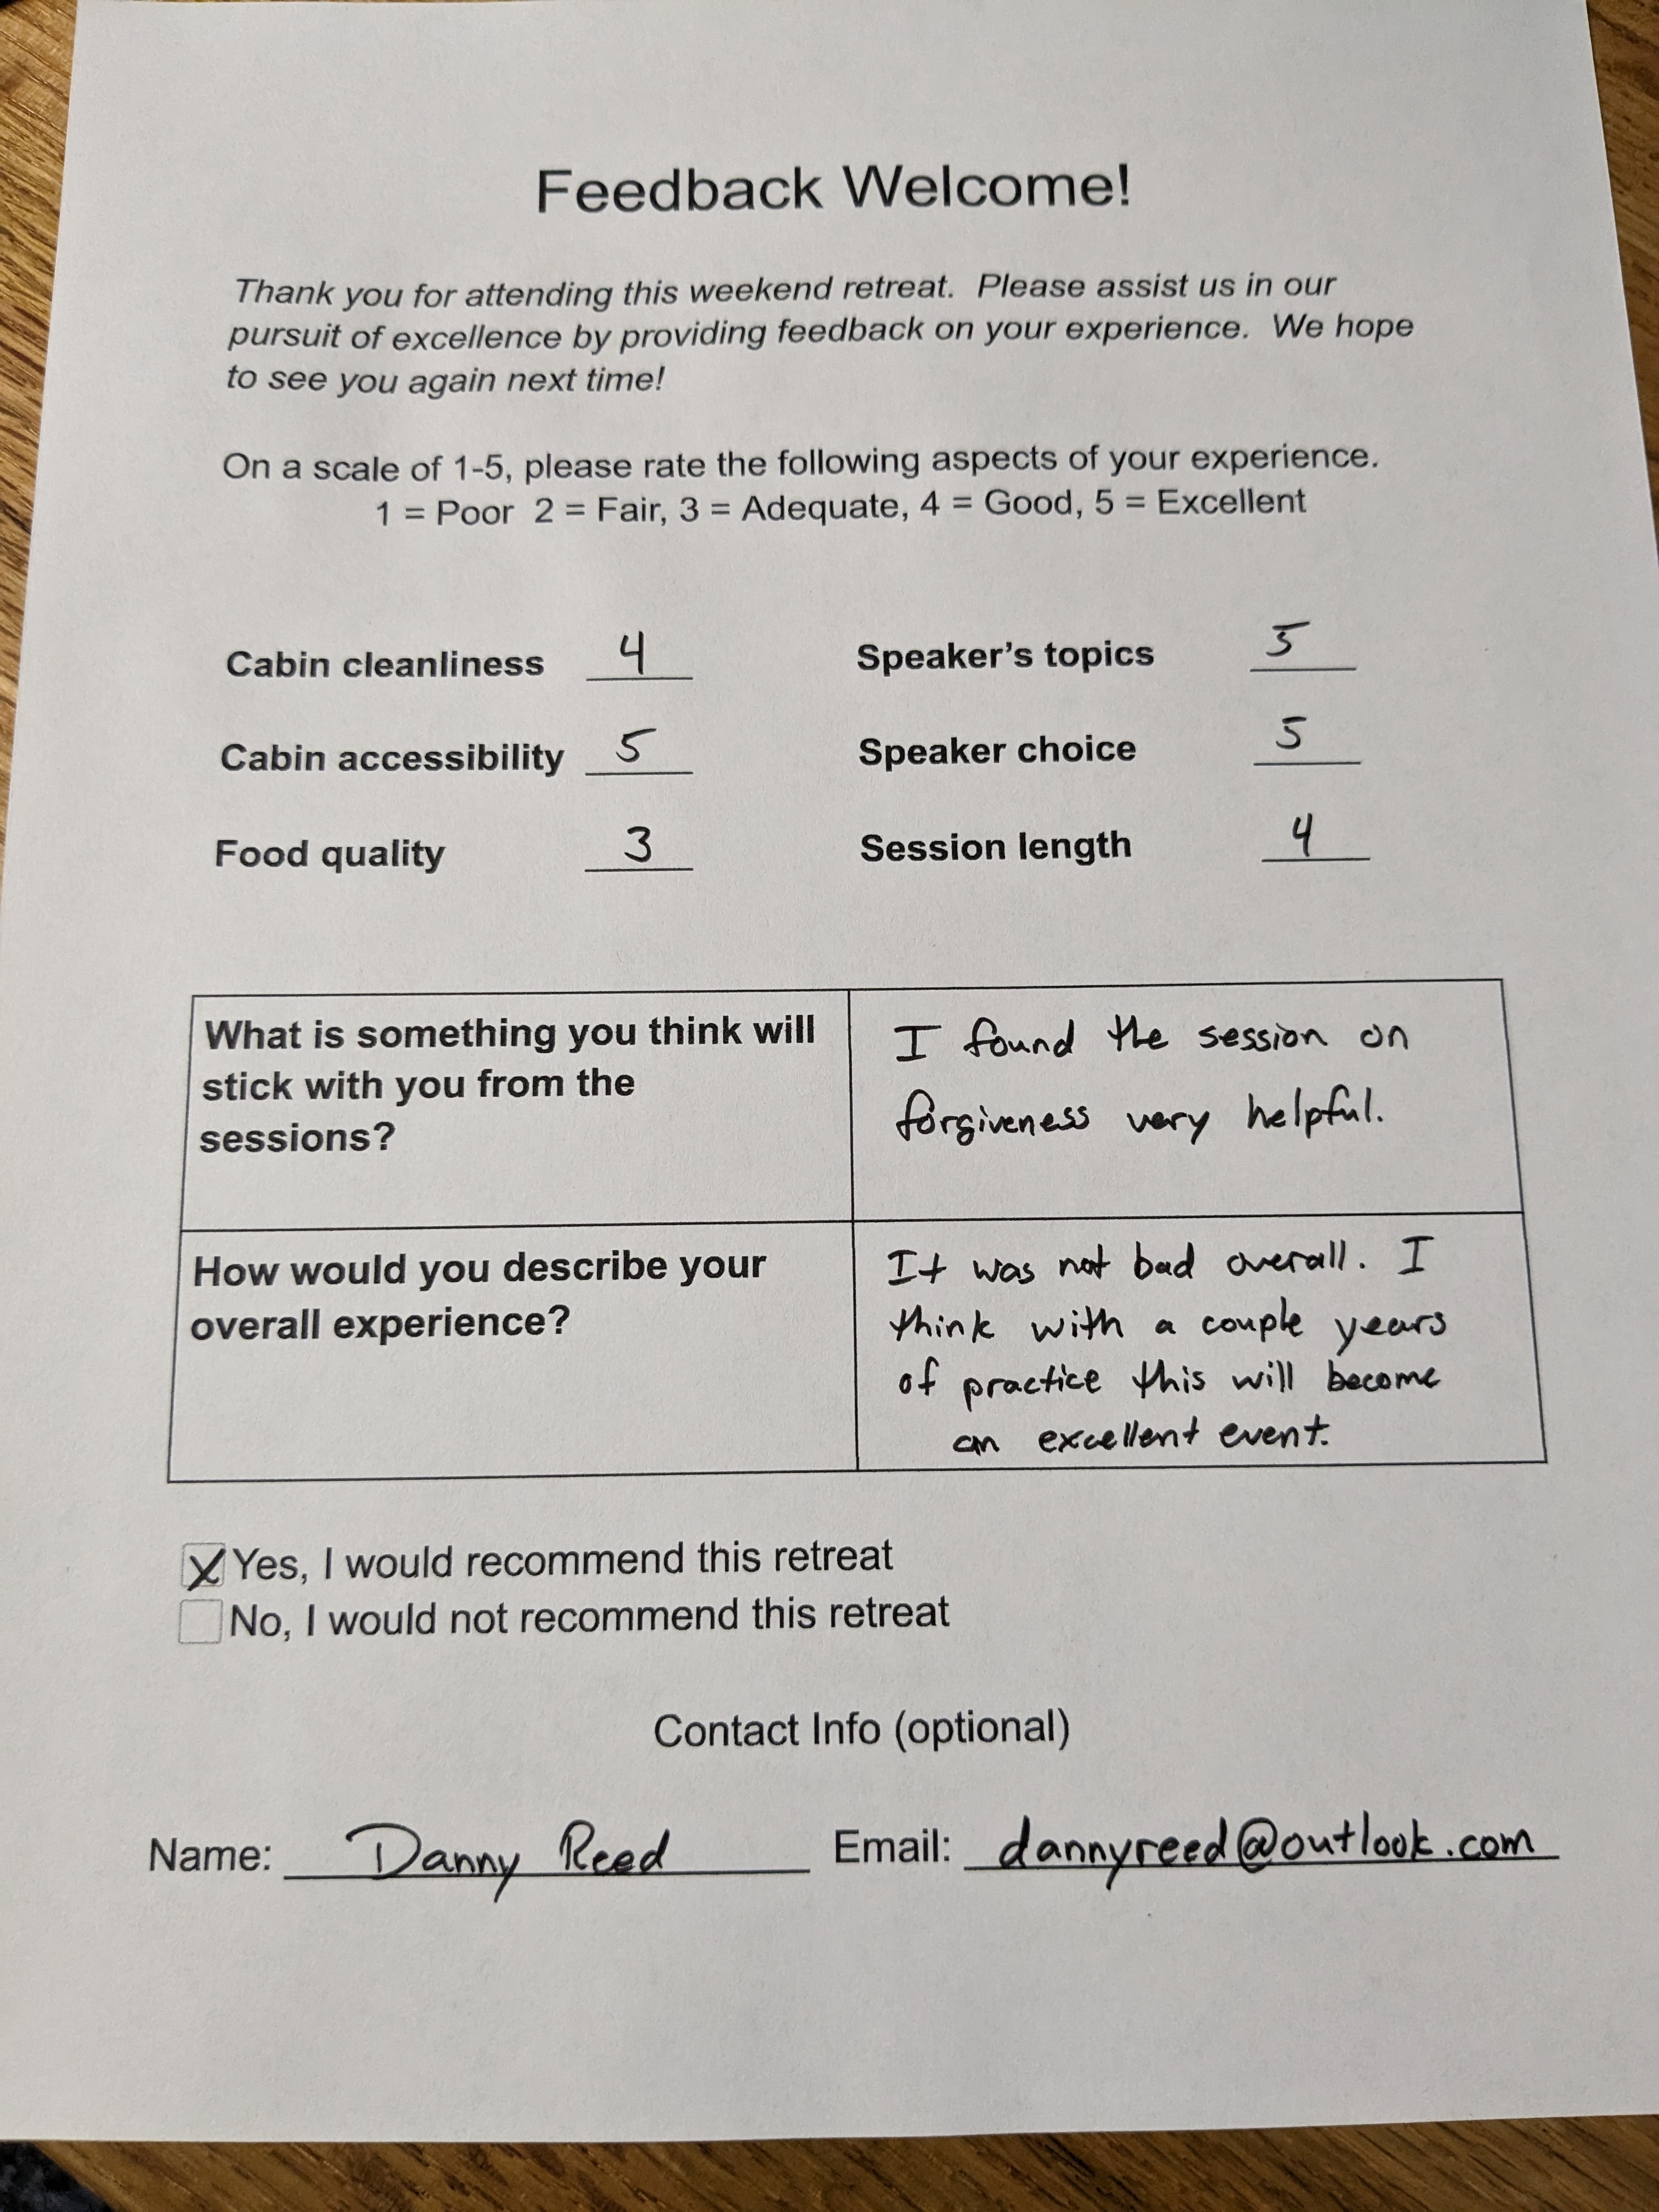 Feedback Welcome!
Thank you for attending this weekend retreat.  Please assist us in our
pursuit of excellence by providing feedback on your experience.  We hope
to see you again next time!
On a scale of 1-5, please rate the following aspects of your experience.
1 = Poor  2 = Fair, 3 = Adequate, 4 = Good, 5 = Excellent
Cabin cleanliness 4 Speaker's topics 5
Cabin accessibility 5 Speaker choice 5
Food quality 3 Session length 4
What is something you think will
stick with you from the
sessions?
I found the session on
forgiveness very helpful.
How would you describe your
overall experience?
It was not bad overall. I
think with a couple years
of practice this will become
an excellent event.
X Yes, I would recommend this retreat
No, I would not recommend this retreat
Contact Info (optional)
Name: Danny Reed Email: dannyreed@outlook.com